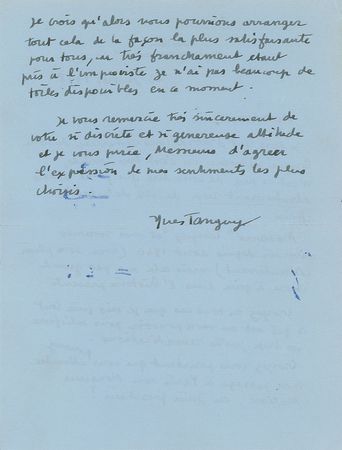 Je crois qu'alors nous pourrions arranger
tout cela de la façon la plus satisfaisante
pour tous, car très franchement étant
pris à l'improviste je n'ai pas beaucoup de
toiles disponibles en ce moment.
Je vous remercie très sincèrement de
votre si discrète et si généreuse attitude
et je vous prie, Messieurs d'agréer
l'expression de mes sentiments les plus
choisis.
Yves Tanguy